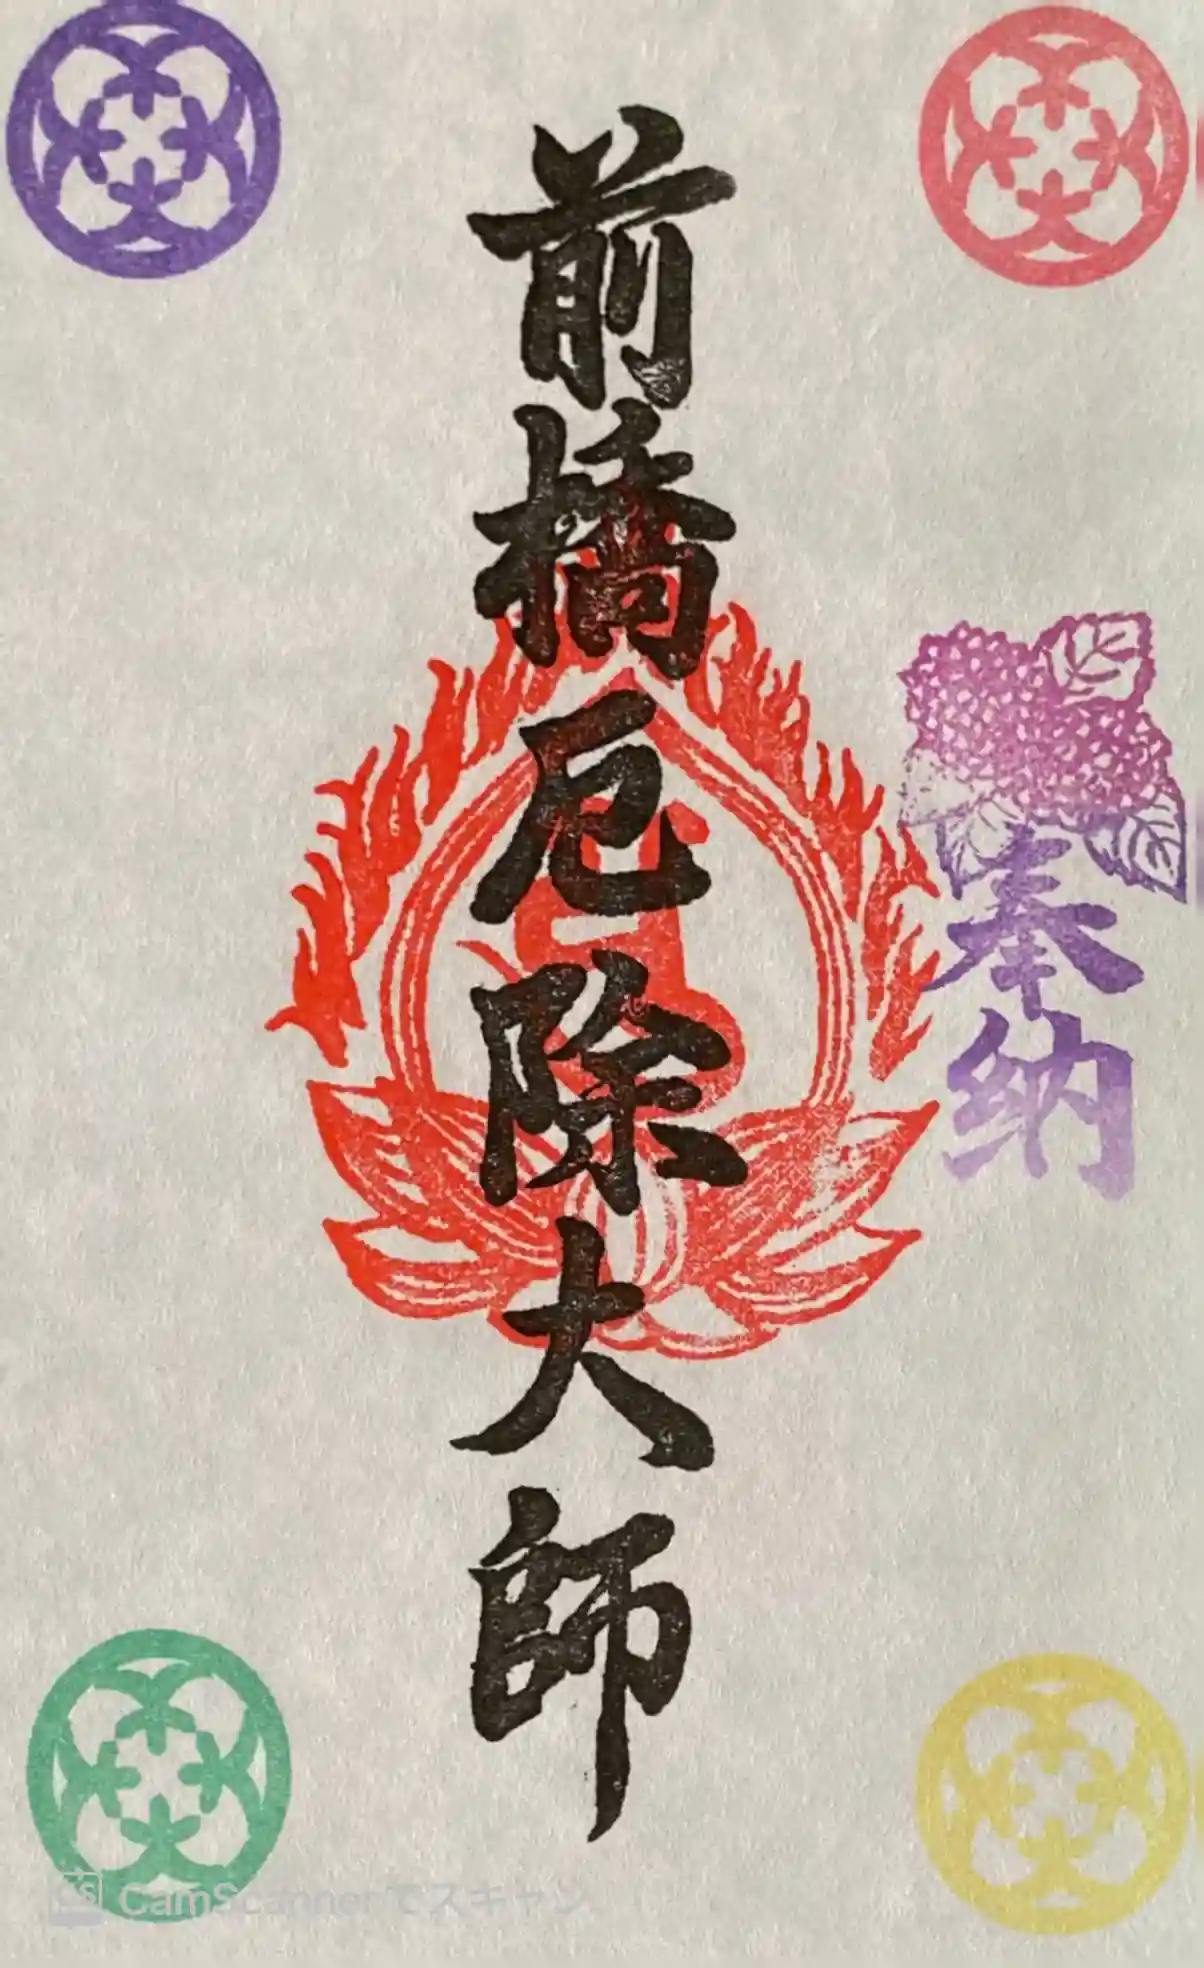 奉納
前橋厄除大師
CS CamScannerでスキャン